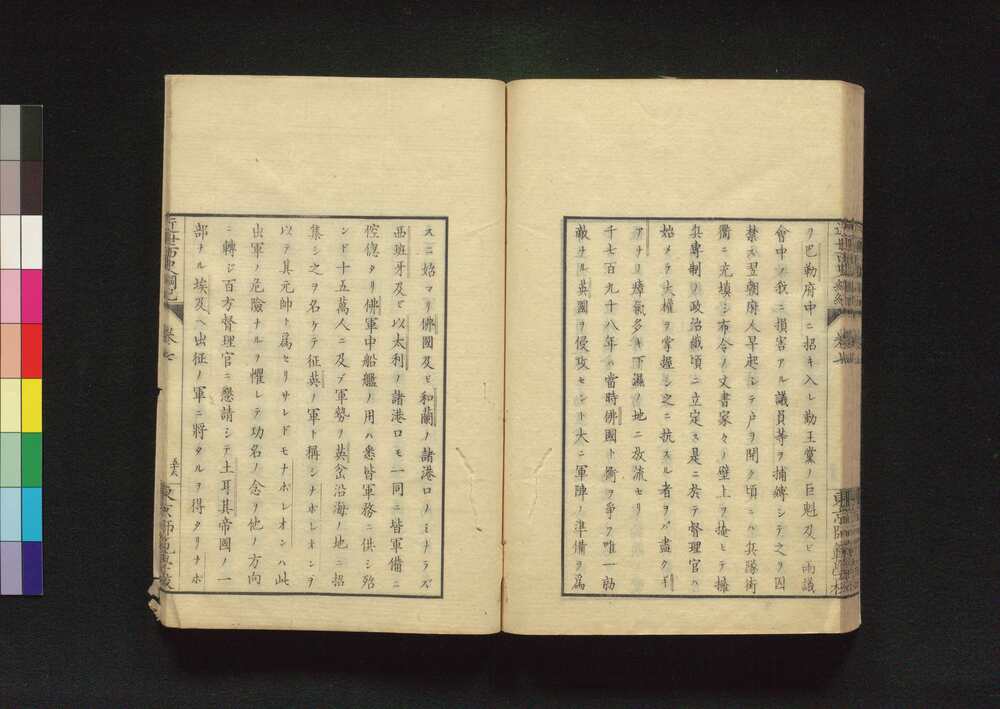 ヲ巴勒府中ニ招キ入レ勤王黨ノ巨魁及ヒ兩議
會中ノ我ニ損害アル議員等ヲ捕縛シテ之ヲ囚
禁ス翌朝府人早起シテ戸ヲ開ク頃ニハ兵隊街
衢ニ充塡シ布令ノ文書家々ノ壁上ヲ掩ヒテ擅
兵專制ノ政治俄頃ニ立定ス是ニ於テ督理官ハ
始メテ大權ヲ掌握シ之ニ抗スル者ヲバ盡クギ
アナノ瘴氣多キ下濕ノ地ニ放流セリ
千七百九十八年ハ當時佛國ト衡ヲ爭フ唯一勍
敵ナル英國ヲ侵攻セント大ニ軍陣ノ準備ヲ爲
スニ始マリ佛國及ビ和蘭ノ諸港口ノミナラズ
西班牙及ビ以太利ノ諸港口モ一同ニ皆軍備ニ
倥偬タリ佛軍中船艦ノ用ハ悉皆軍務ニ供シ殆
ンド十五萬人ニ及ブ軍勢ヲ英岔沿海ノ地ニ招
集シ之ヲ名ケテ征英ノ軍ト稱シナポレオンヲ
以テ其元帥ト爲セリサレドモナポレオンハ此
出軍ノ危險ナルヲ懼レテ功名ノ念ヲ他ノ方向
ニ轉ジ百方督理官ニ懇請シテ土耳其帝國ノ一
部ナル埃及ヘ出征ノ軍ニ將タルヲ得タリナポ
近世西史綱紀
卷七
五十六
東京師範學校